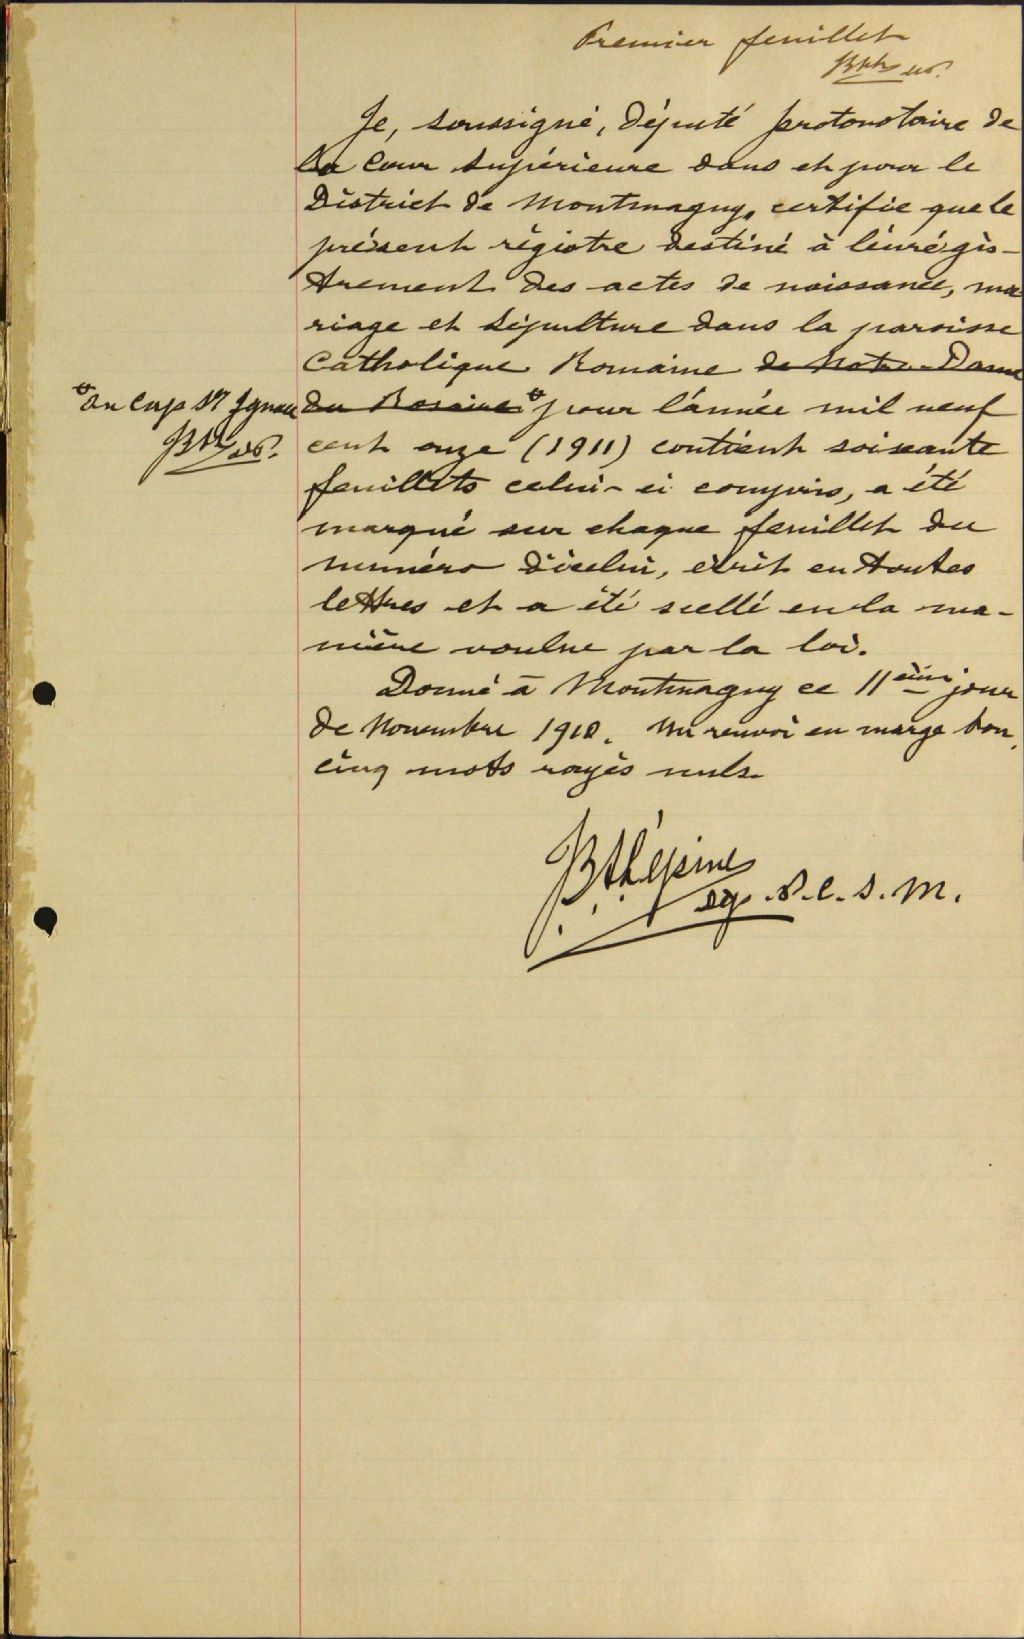 Premier feuillet
Je, soussigné, Député protonotaire de
la Cour Supérieure dans et pour le
District de Montmagny, certifie que le
présent régistre destiné à l'enrégis-
trement des actes de naissance, ma
riage et sépulture dans la paroisse
Catholique Romaine de Notre-Dame
du Rosaire pour l'année mil neuf
du Cap St Ignace
cent onze (1911) contient soixante
feuillets celui-ci compris, a été
marqué sur chaque feuillet du
numéro d'icelui, écrit en toutes
lettres et a été scellé en la ma-
nière voulue par la loi.
Donné à Montmagny ce 11ème jour
de Novembre 1910. Un renvoi en marge bon,
cinq mots rayés nuls.
Lépine
P.C.S.M.